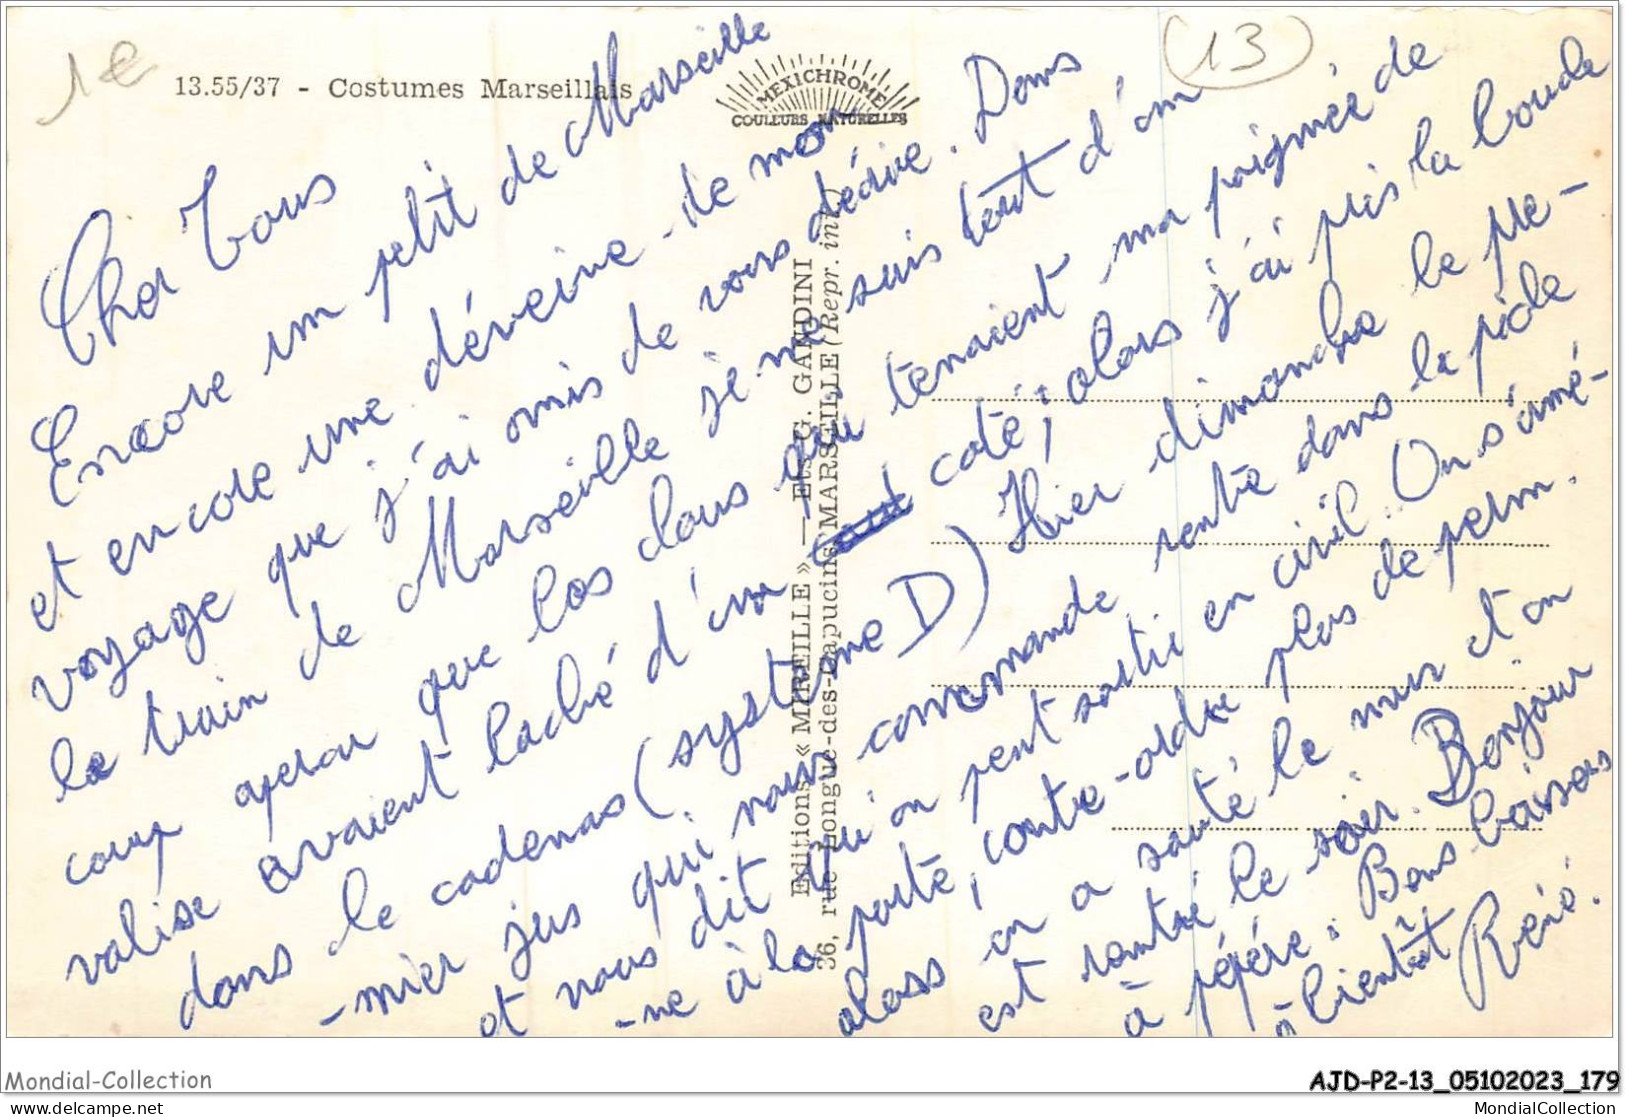 1€
13.55/37 - Costumes Marseillais
MEXICHROME
COULEURS NATURELLES
(13)
Cher Tous
Encore un petit de Marseille
et encore une déveine de mon
voyage que j'ai omis de vous décrire. Dans
le train de Marseille je me suis tout d'un
coup aperçu que les clous qui tenaient ma poignée de
valise avaient laché d'un coté ; alors j'ai pris la boucle
dans le cadenas (système D) Hier dimanche le pre-
-mier jus qui nous commande rentre dans la piole
et nous dit qu'on peut sortir en civil. On s'amé-
-ne à la porte, contre-ordre plus de perm.
alors on a sauté le mur et on
est rentré le soir. Bonjour
à pépère. Bons baisers
à bientôt
René.
Editions « MIREILLE » — Ets G. GANDINI
36, rue Longue-des-Capucins, MARSEILLE (Repr. int.)
Mondial-Collection
AJD-P2-13_05102023_179
www.delcampe.net
MondialCollection